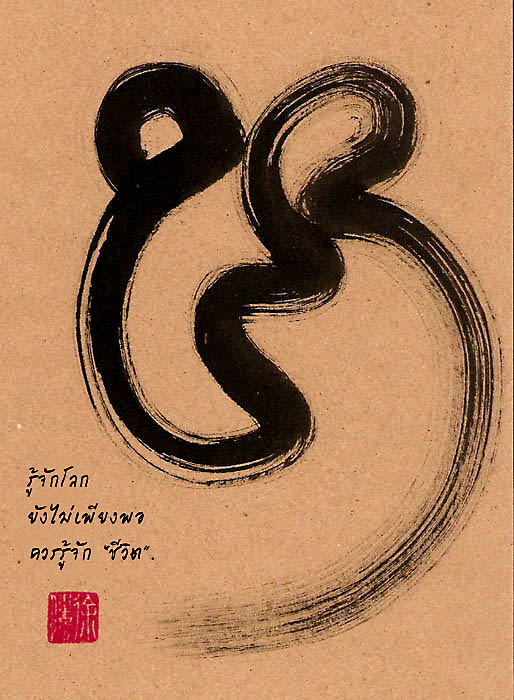 รู้จักโลก
ยังไม่เพียงพอ
ควรรู้จัก "ชีวิต".